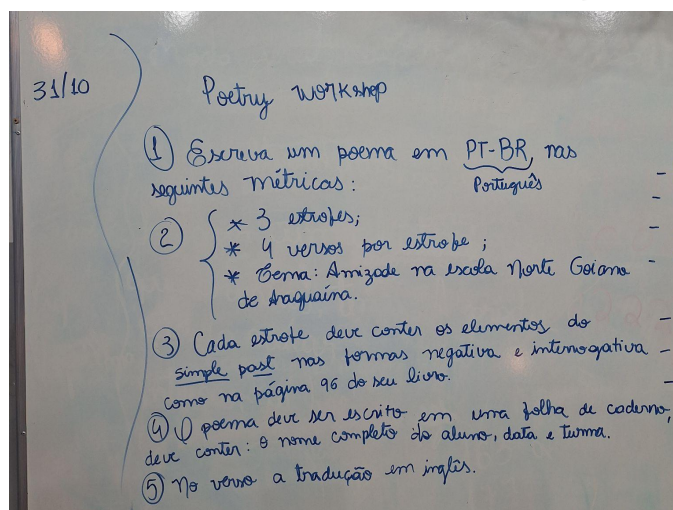 31/10
Poetry workshop
1 Escreva um poema em PT-BR, nas
Português
seguintes métricas:
2 * 3 estrofes;
* 4 versos por estrofe;
* Tema: Amizade na escola Norte Goiano
de Araguaína.
3 Cada estrofe deve conter os elementos do
simple past nas formas negativa e interrogativa
como na página 96 do seu livro.
4 O poema deve ser escrito em uma folha de caderno,
deve conter: o nome completo do aluno, data e turma.
5 No verso a tradução em inglês.